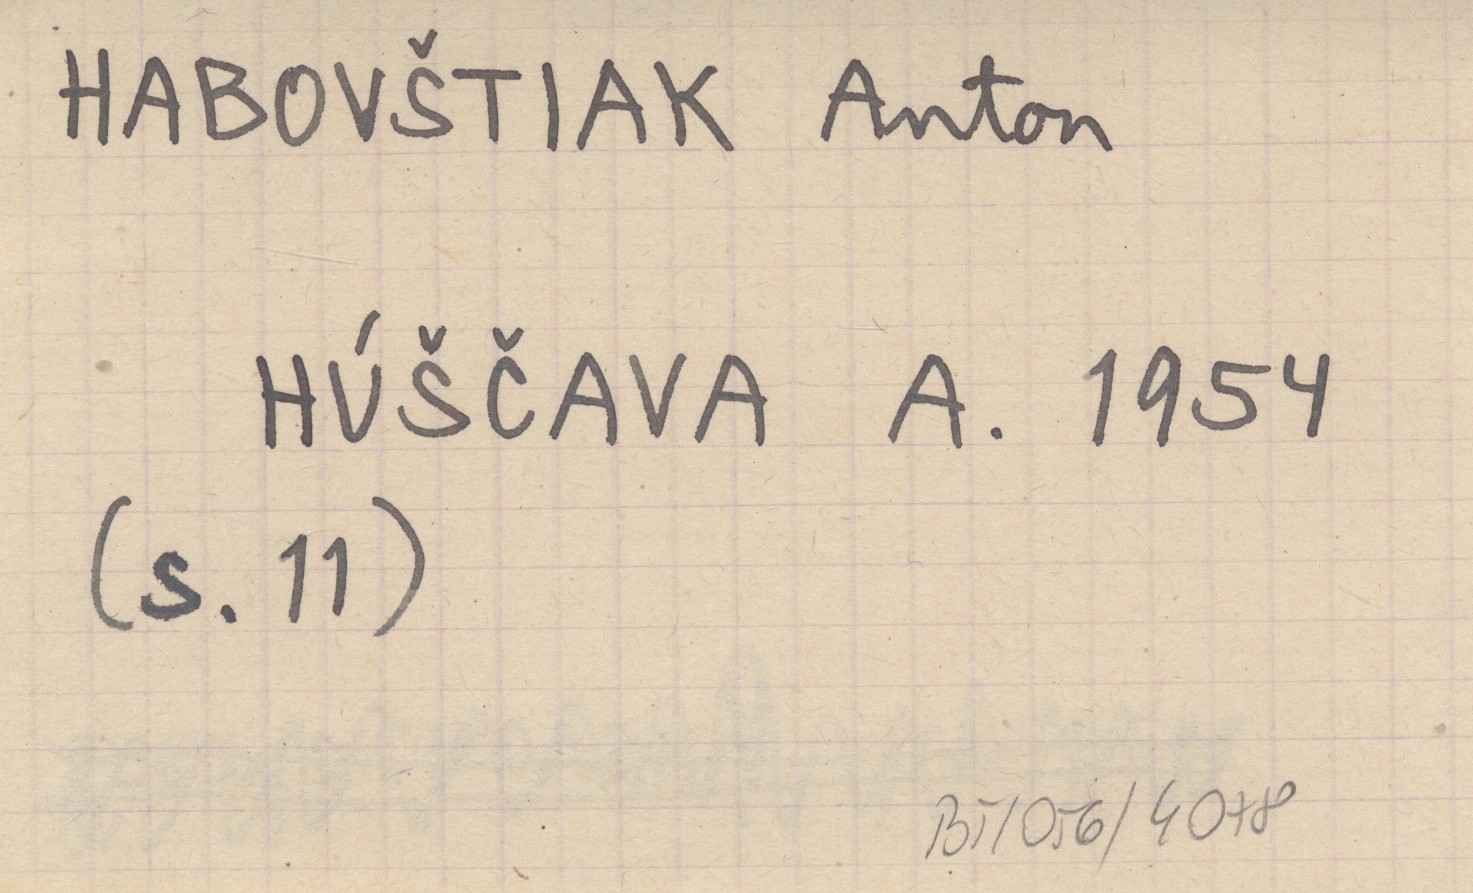 HABOVŠTIAK Anton
HÚŠČAVA A. 1954
(s. 11)
BI/056/4078